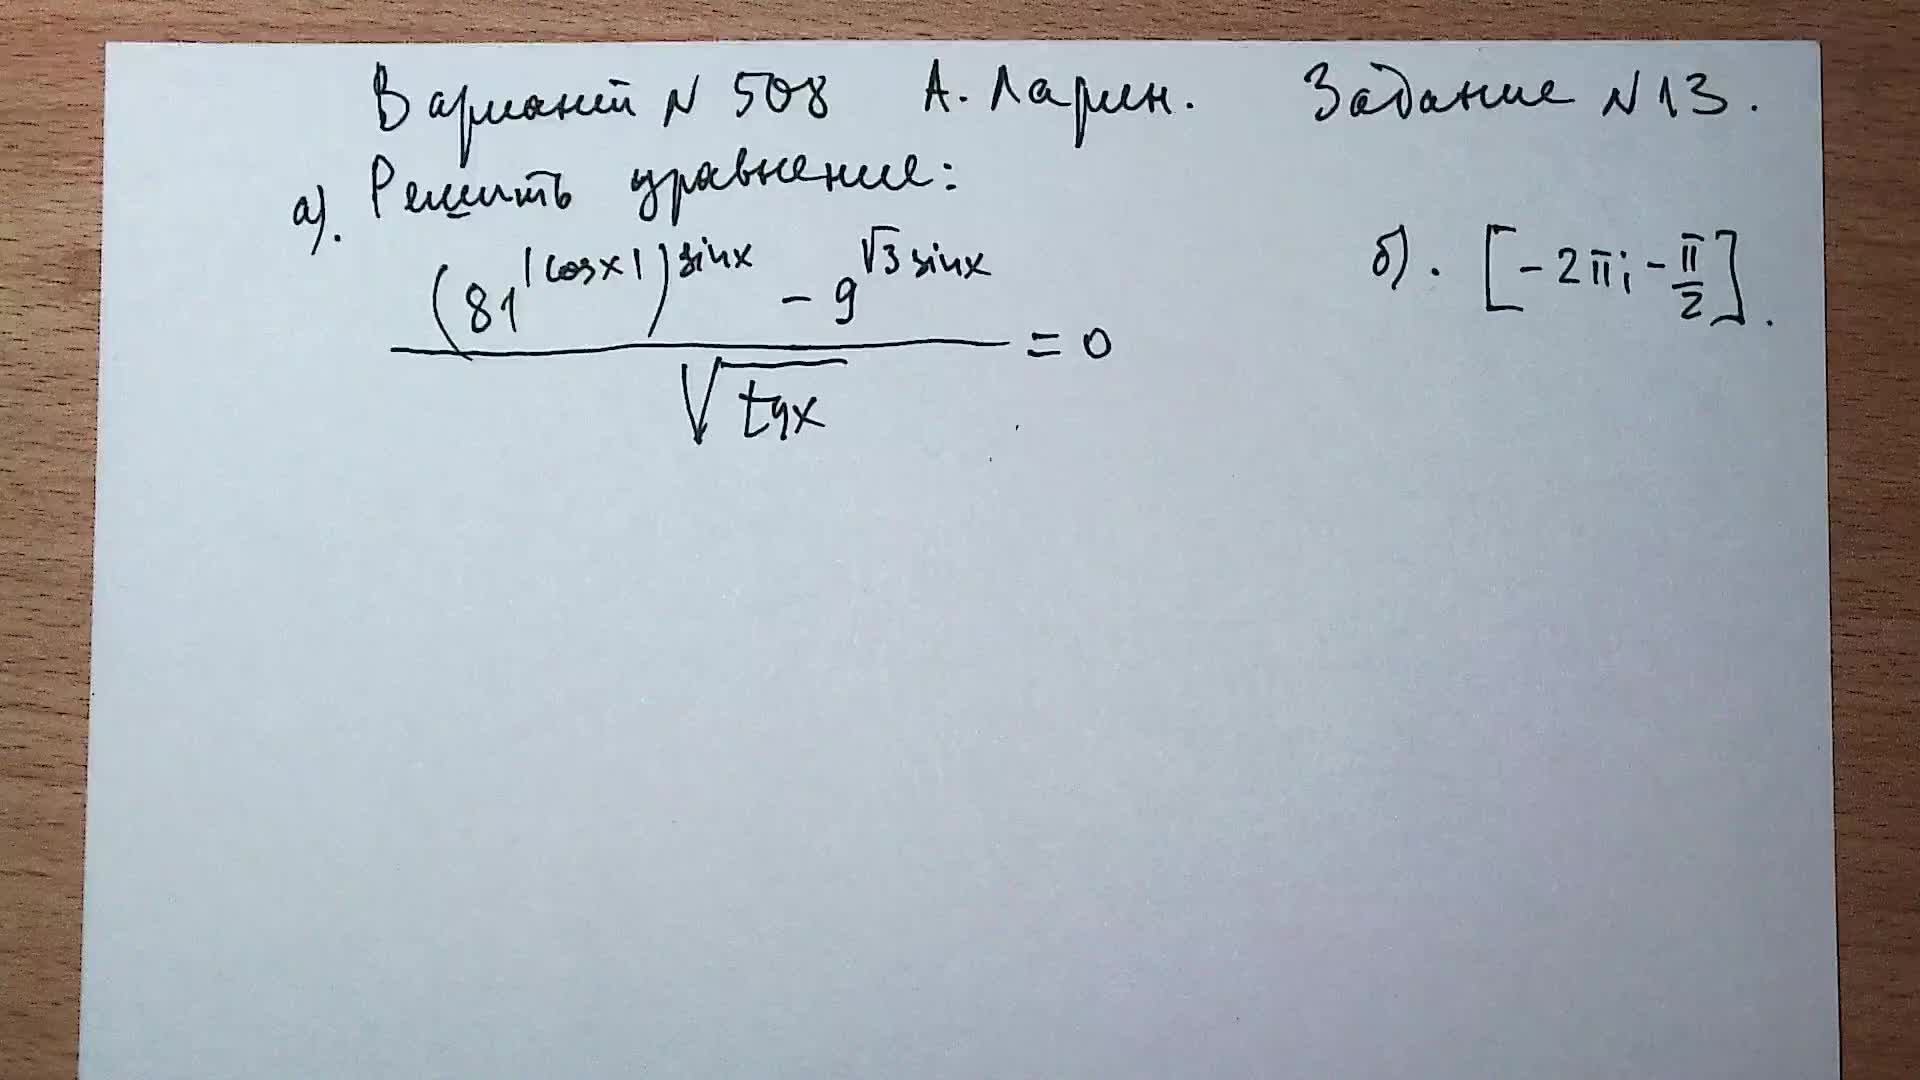 Вариант N 508 А. Ларин. Задание N13.
а). Решить уравнение:
(81^|cosx|)^sinx - 9^√3 sinx = 0
√tgx
б). [-2π; -π/2].